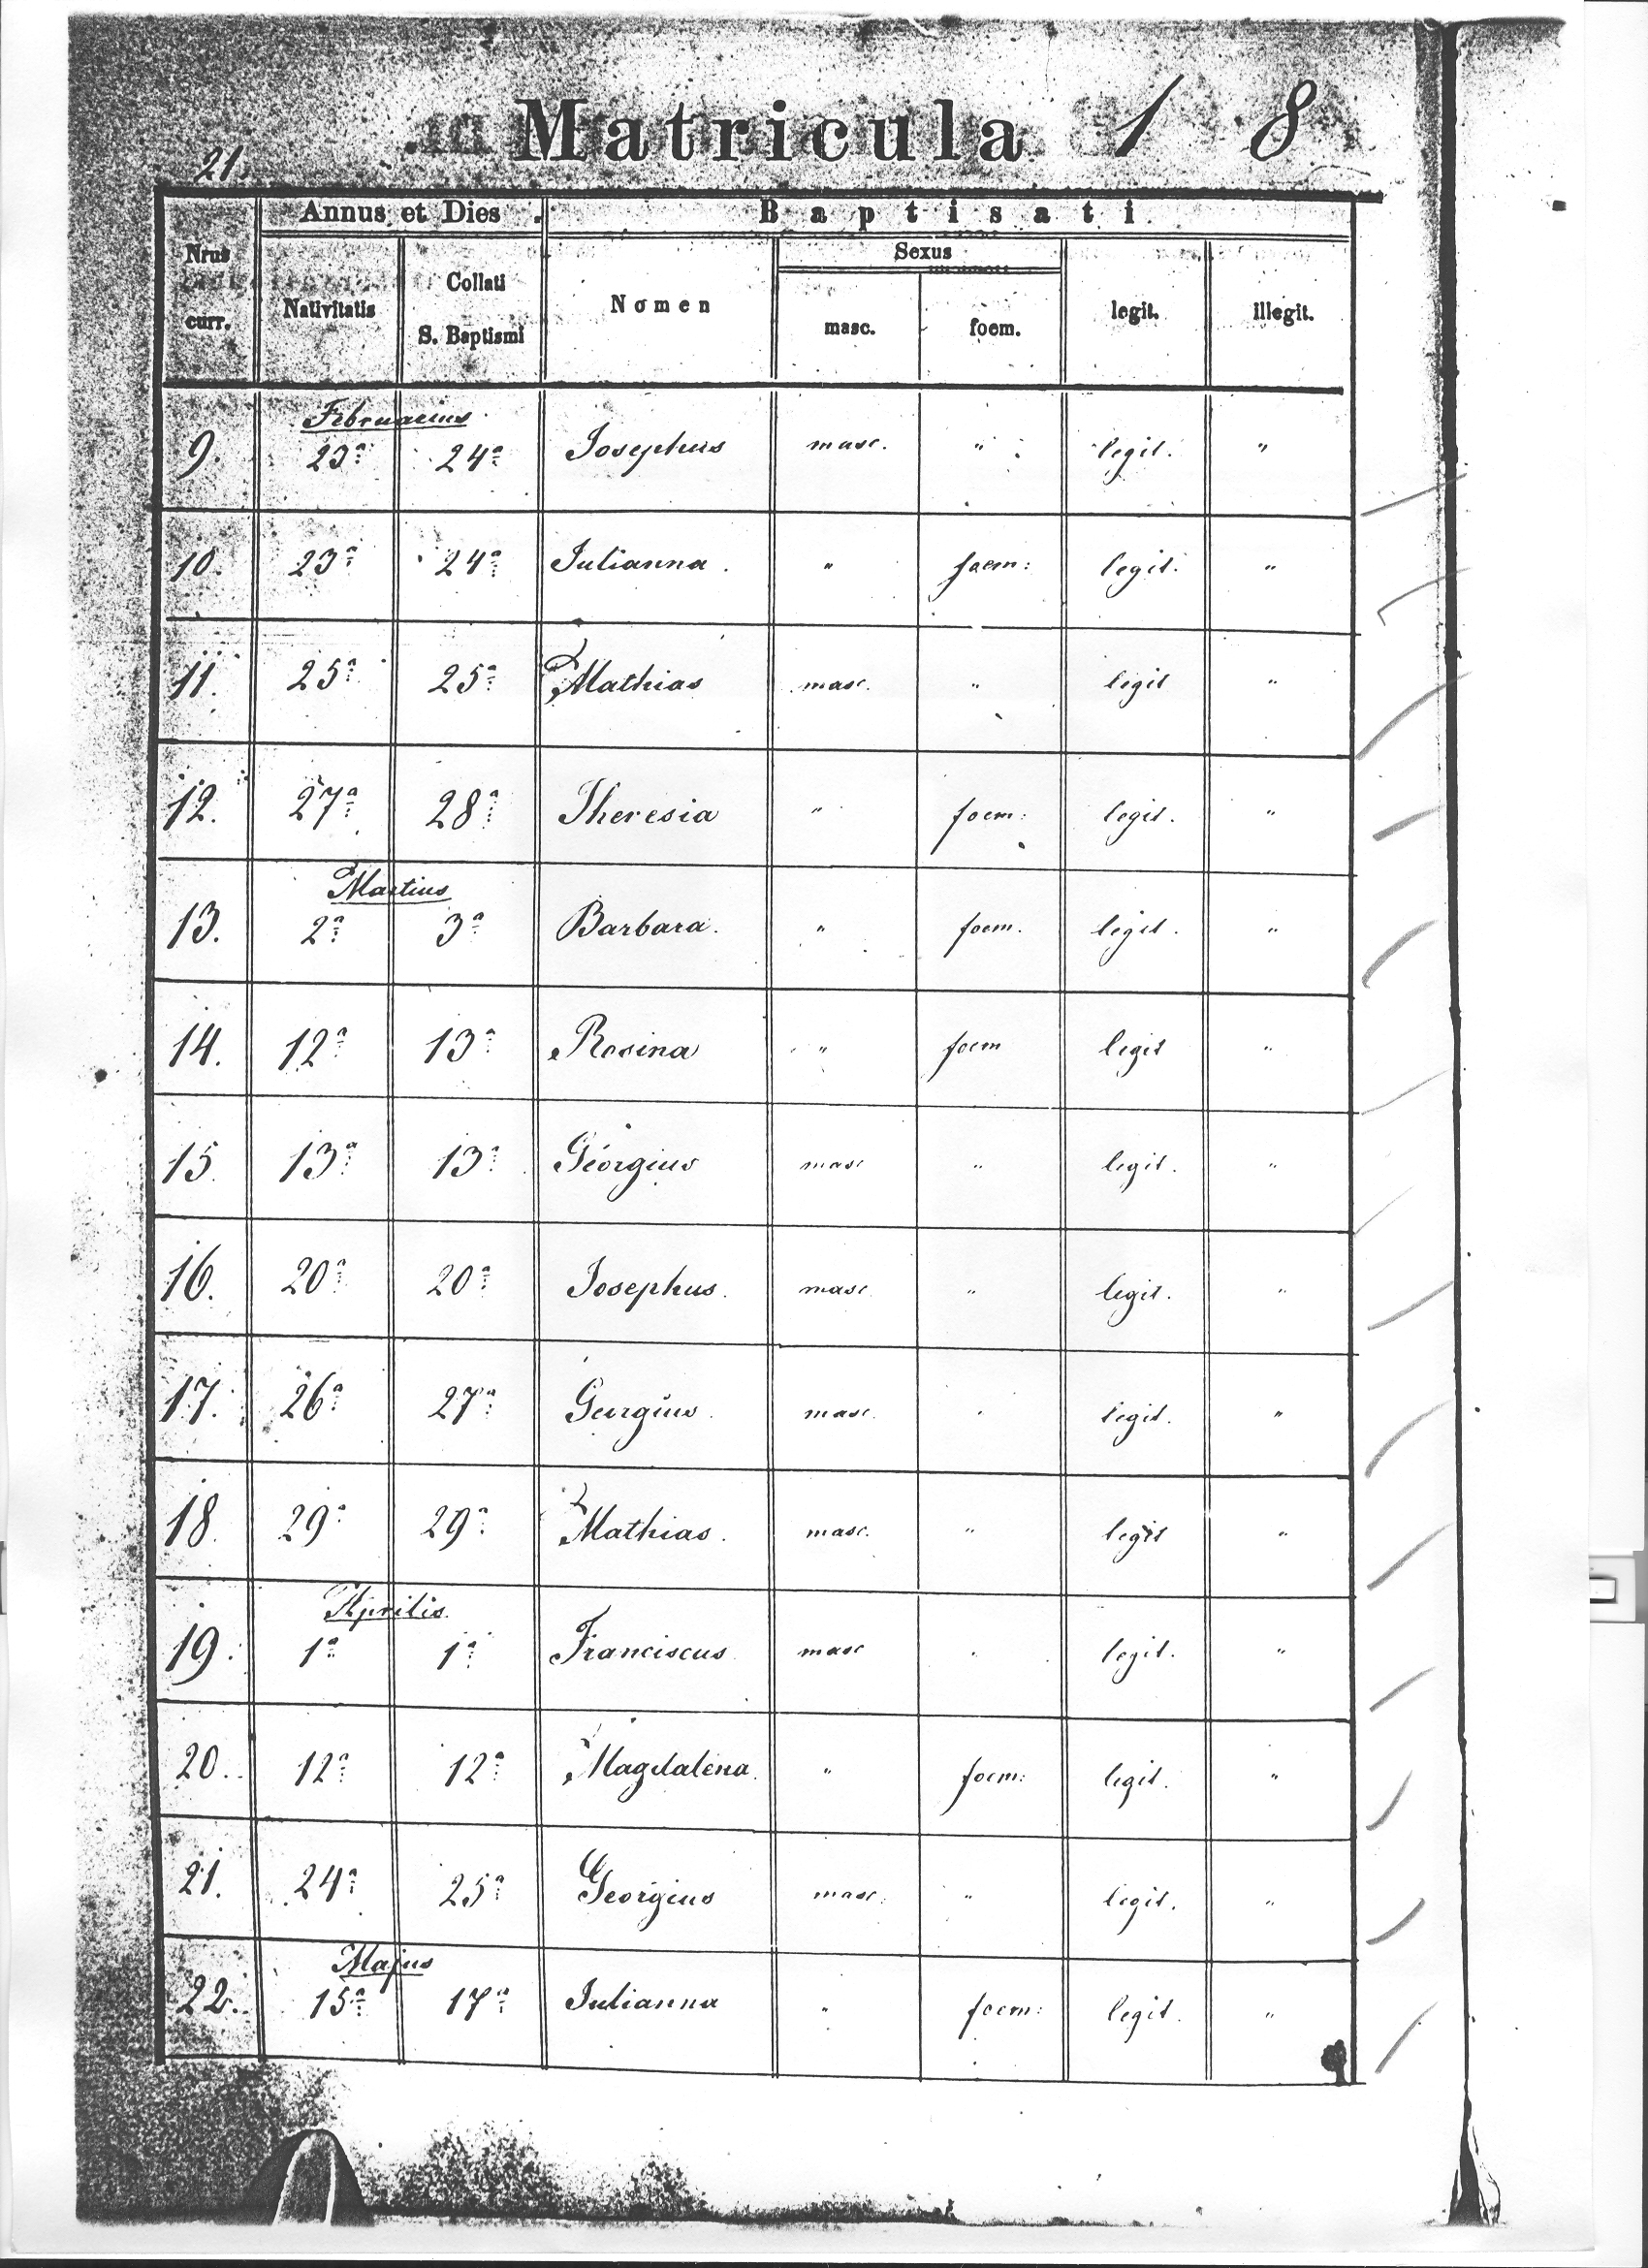 Matricula 1 8
21.
Annus et Dies Baptisati
Nrus curr. Nativitatis Collati S. Baptismi Nomen Sexus masc. foem. legit. illegit.
Februarius
9. 23a 24a Josephus masc. " legit. "
10. 23a 24a Julianna. " foem: legit. "
11. 25a 25a Mathias masc. " legit "
12. 27a 28a Theresia " foem: legit. "
Martius
13. 2a 3a Barbara. " foem. legit. "
14. 12a 13a Rosina " foem legit "
15. 13a 13a Georgius masc " legit. "
16. 20a 20a Josephus. masc. " legit. "
17. 26a 27a Georgius. masc. " legit. "
18. 29a 29a Mathias. masc. " legit "
Aprilis.
19. 1a 1a Franciscus masc " legit. "
20. 12a 12a Magdalena. " foem: legit. "
21. 24a 25a Georgius masc. " legit. "
Majus
22. 15a 17a Julianna " foem: legit. "